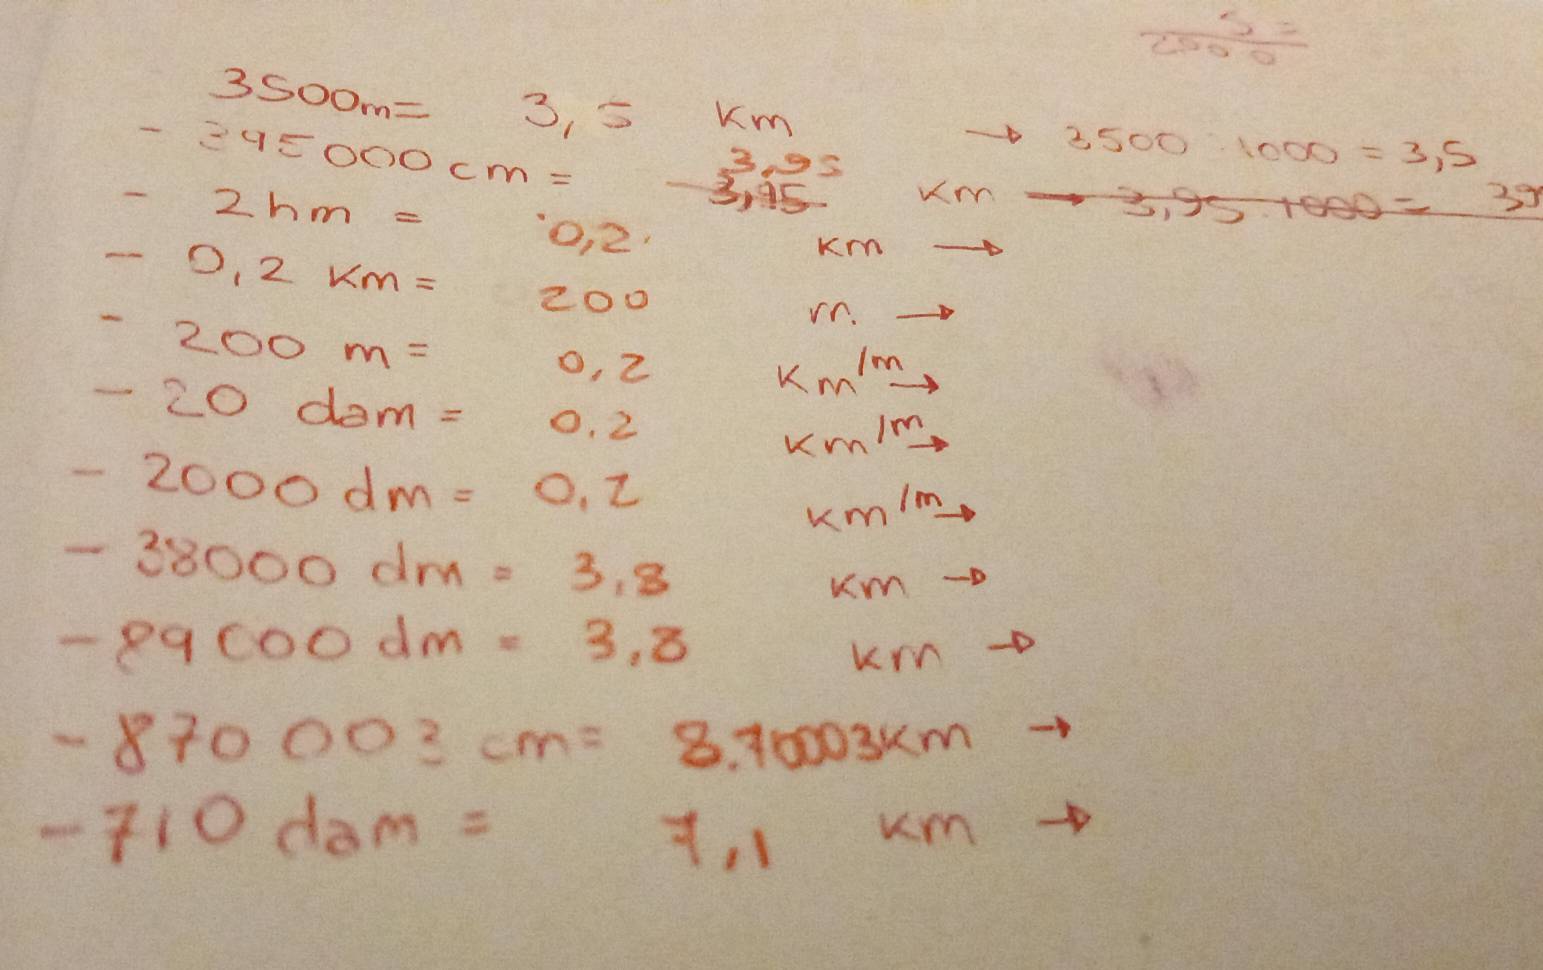 3500m = 3,5 Km → 3500 : 1000 = 3,5
- 395000 cm = 3,95 3,95 Km → 3,95 . 1000 = 39
- 2hm = 0,2 km →
- 0,2 Km = 200 m. →
- 200 m = 0,2 Km/m →
- 20 dam = 0.2 Km/m →
- 2000 dm = 0,2 km/m →
- 38000 dm = 3,8 km →
- 89000 dm = 3,8 km →
- 870 003 cm = 8.70003Km →
- 710 dam = 7,1 km →